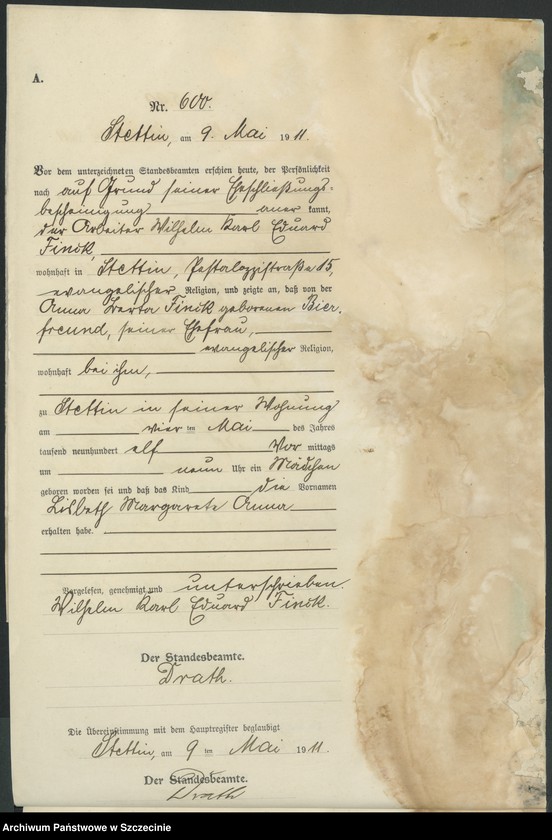 A.
Nr. 600.
Stettin, am 9. Mai 1911.
Vor dem unterzeichneten Standesbeamten erschien heute, der Persönlichkeit
nach auf Grund seiner Eheschließungs-
bescheinigung anerkannt,
der Arbeiter Wilhelm Karl Eduard
Finck,
wohnhaft in Stettin, Pestalozzistraße 15,
evangelischer Religion, und zeigte an, daß von der
Anna Berta Finck geborenen Bier-
freund, seiner Ehefrau,
evangelischer Religion,
wohnhaft bei ihm,
zu Stettin in seiner Wohnung
am vier ten Mai des Jahres
tausend neunhundert elf Vor mittags
um neun Uhr ein Mädchen
geboren worden sei und daß das Kind die Vornamen
Lisbeth Margarete Anna
erhalten habe.
Vorgelesen, genehmigt und unterschrieben.
Wilhelm Karl Eduard Finck.
Der Standesbeamte.
Drath.
Die Übereinstimmung mit dem Hauptregister beglaubigt
Stettin, am 9 ten Mai 1911.
Der Standesbeamte.
Drath
Archiwum Państwowe w Szczecinie